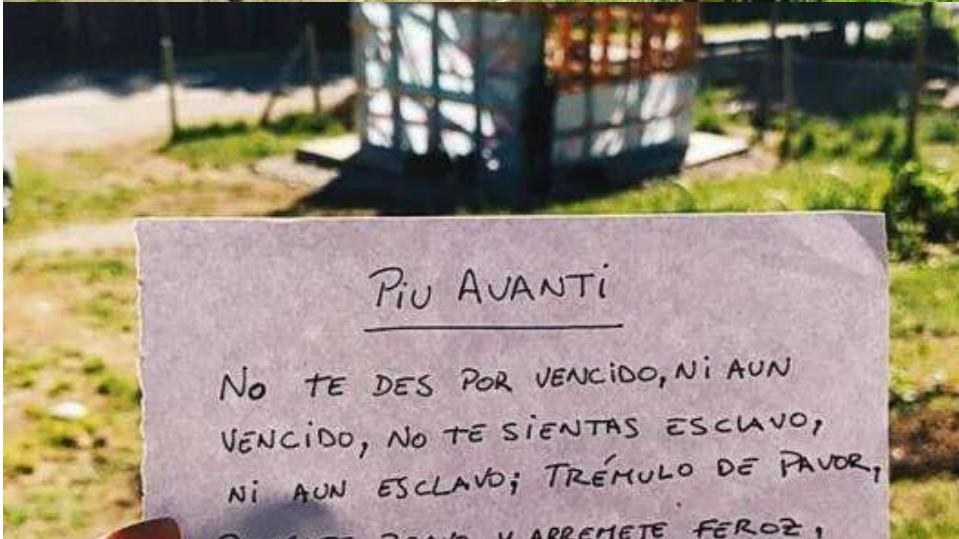 Piu AVANTi
No TE DES POR VENCiDO, Ni AUN
VENCiDO, No TE SiENTAS ESCLAVO,
Ni AUN ESCLAVO; TRÉMULO DE PAVOR,
Y ARREMETE FEROZ,